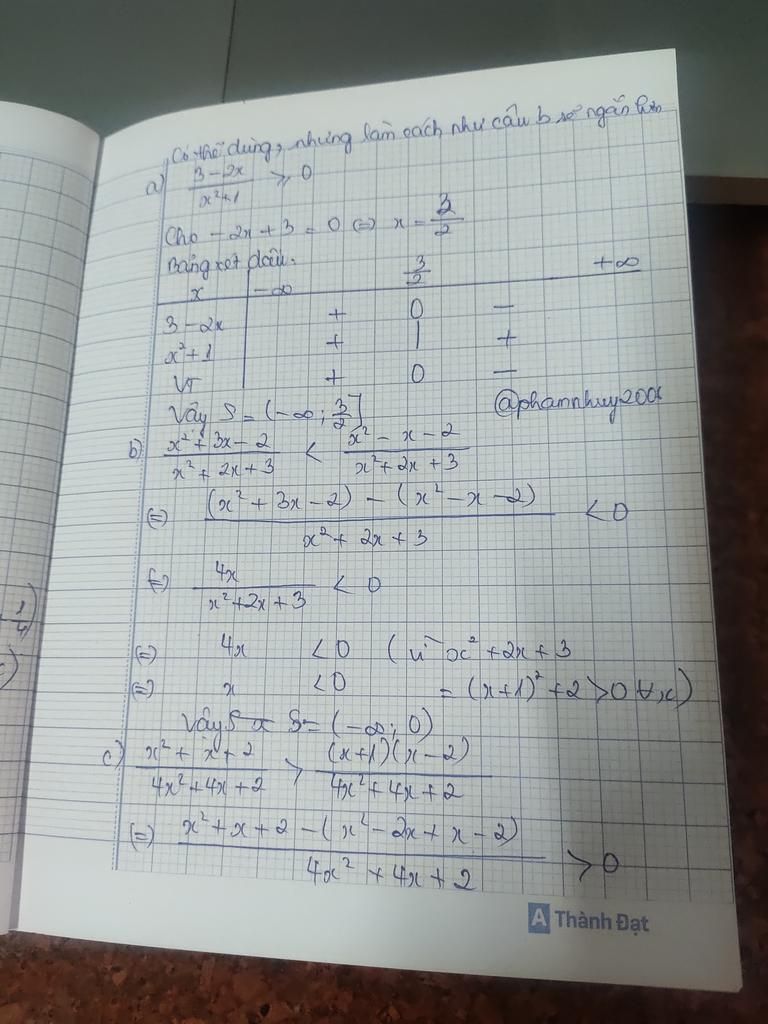 Có thể dùng, nhưng làm cách như câu b sẽ ngắn hơn
a) (3-2x)/(x²+1) ≥ 0
Cho -2x+3 = 0 (=) x = 3/2
Bảng xét dấu:
x -∞ 3/2 +∞
3-2x + 0 -
x²+1 + | +
VT + 0 -
Vậy S = (-∞; 3/2]
@phamnhuy2006
b) (x²+3x-2)/(x²+2x+3) < (x²-x-2)/(x²+2x+3)
(=) ((x²+3x-2)-(x²-x-2))/(x²+2x+3) < 0
(=) 4x/(x²+2x+3) < 0
(=) 4x < 0 (vì x²+2x+3
(=) x < 0 = (x+1)²+2>0 ∀x)
Vậy S = (-∞; 0)
c) (x²+x+2)/(4x²+4x+2) > (x+1)(x-2)/(4x²+4x+2)
(=) (x²+x+2-(x²-2x+x-2))/(4x²+4x+2) > 0
A Thành Đạt